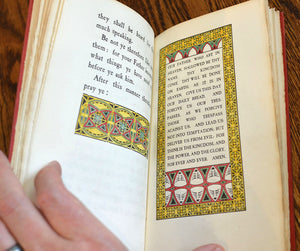 they shall be heard for
much speaking.
Be not ye therefore like
them: for your Father
what things ye have need
before ye ask him.
After this manner
pray ye:
OUR FATHER, WHO ART IN
HEAVEN, HALLOWED BE THY
NAME. THY KINGDOM
COME. THY WILL BE DONE
ON EARTH, AS IT IS IN
HEAVEN. GIVE US THIS DAY
OUR DAILY BREAD. AND
FORGIVE US OUR TRES-
PASSES, AS WE FORGIVE
THOSE WHO TRESPASS
AGAINST US. AND LEAD US
NOT INTO TEMPTATION; BUT
DELIVER US FROM EVIL: FOR
THINE IS THE KINGDOM, AND
THE POWER, AND THE GLORY,
FOR EVER AND EVER. AMEN.